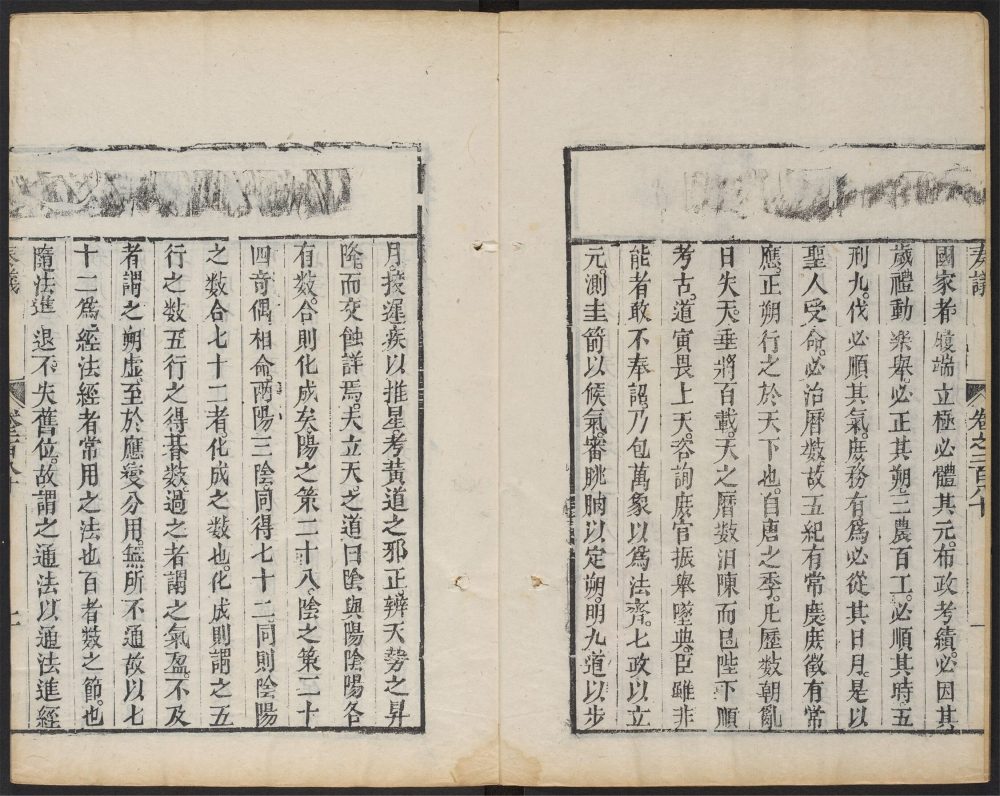 奏議
卷之二百八十
一
國家者履端立極必體其元布政考績必因其
歲禮動樂舉必正其朔三農百工必順其時五
刑九伐必順其氣庶務有爲必從其日月是以
聖人受命必治曆數故五紀有常度庶徵有常
應正朔行之於天下也自唐之季凡歷數朝亂
日失天垂將百載天之曆數汨陳而已陛下順
考古道寅畏上天咨詢庶官振舉墜典臣雖非
能者敢不奉詔乃包萬象以爲法齊七政以立
元測圭箭以候氣審朓朒以定朔明九道以步
月挍遲疾以推星考黃道之邪正辨天勢之昇
降而交蝕詳焉夫立天之道曰陰與陽陰陽各
有數合則化成矣陽之策二十八陰之策二十
四奇偶相命兩陽三陰同得七十二同則陰陽
之數合七十二者化成之數也化成則謂之五
行之數五行之得朞數過之者謂之氣盈不及
者謂之朔虛至於應變分用無所不通故以七
十二爲經法經者常用之法也百者數之節也
隨法進退不失舊位故謂之通法以通法進經
奏議